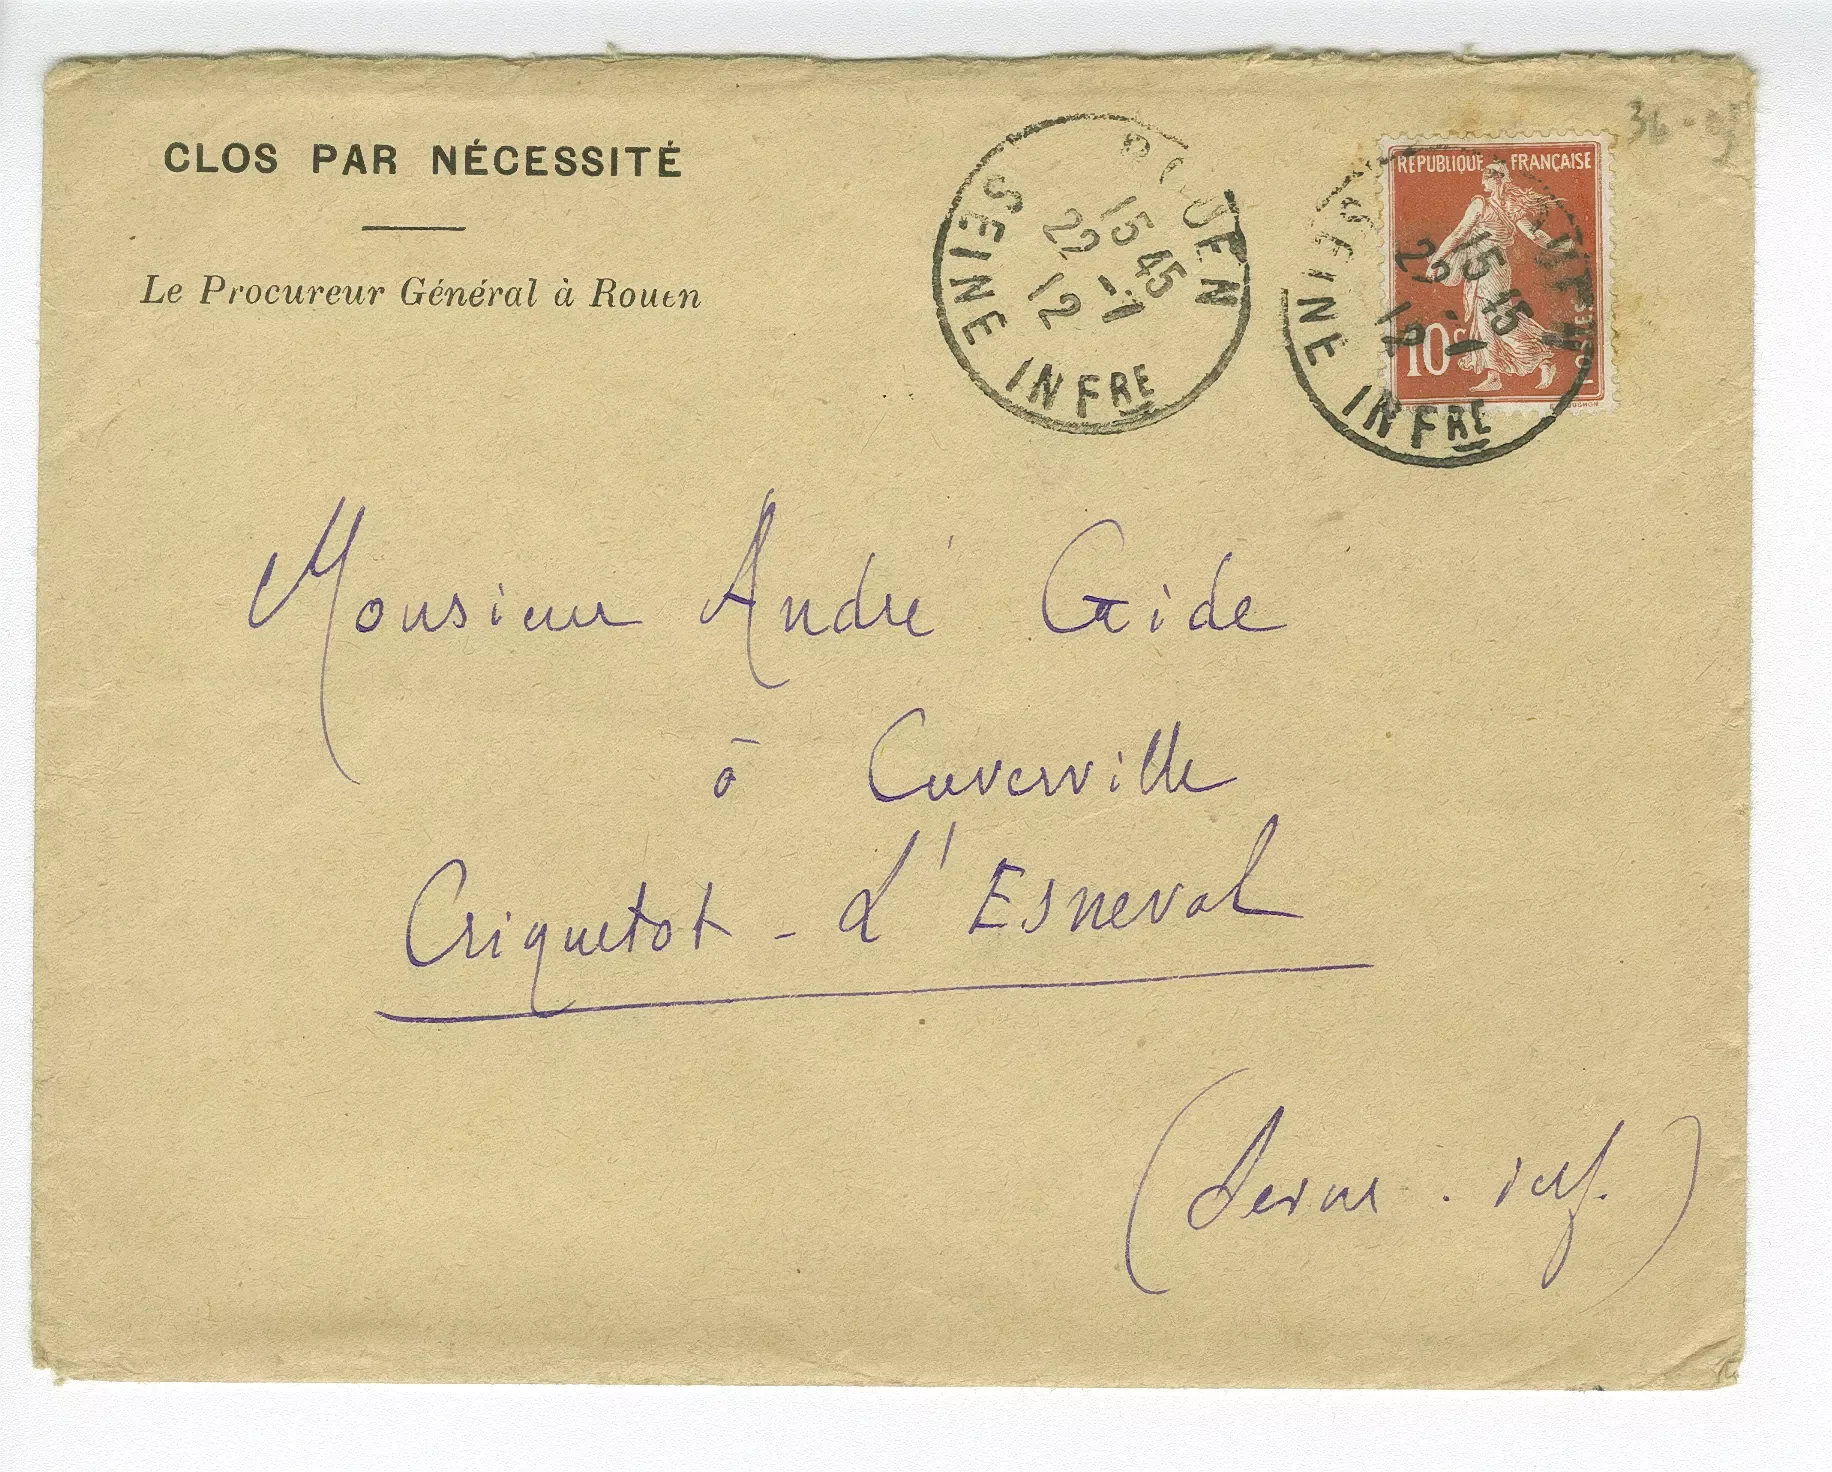 CLOS PAR NÉCESSITÉ
Le Procureur Général à Rouen
ROUEN
15 45
22 -1
12
SEINE INFRE
RÉPUBLIQUE FRANÇAISE
10c
POSTES
ROUEN
15 45
22 -1
12
SEINE INFRE
Monsieur André Gide
à Cuverville
Criquetot - d'Esneval
(Seine . inf.)